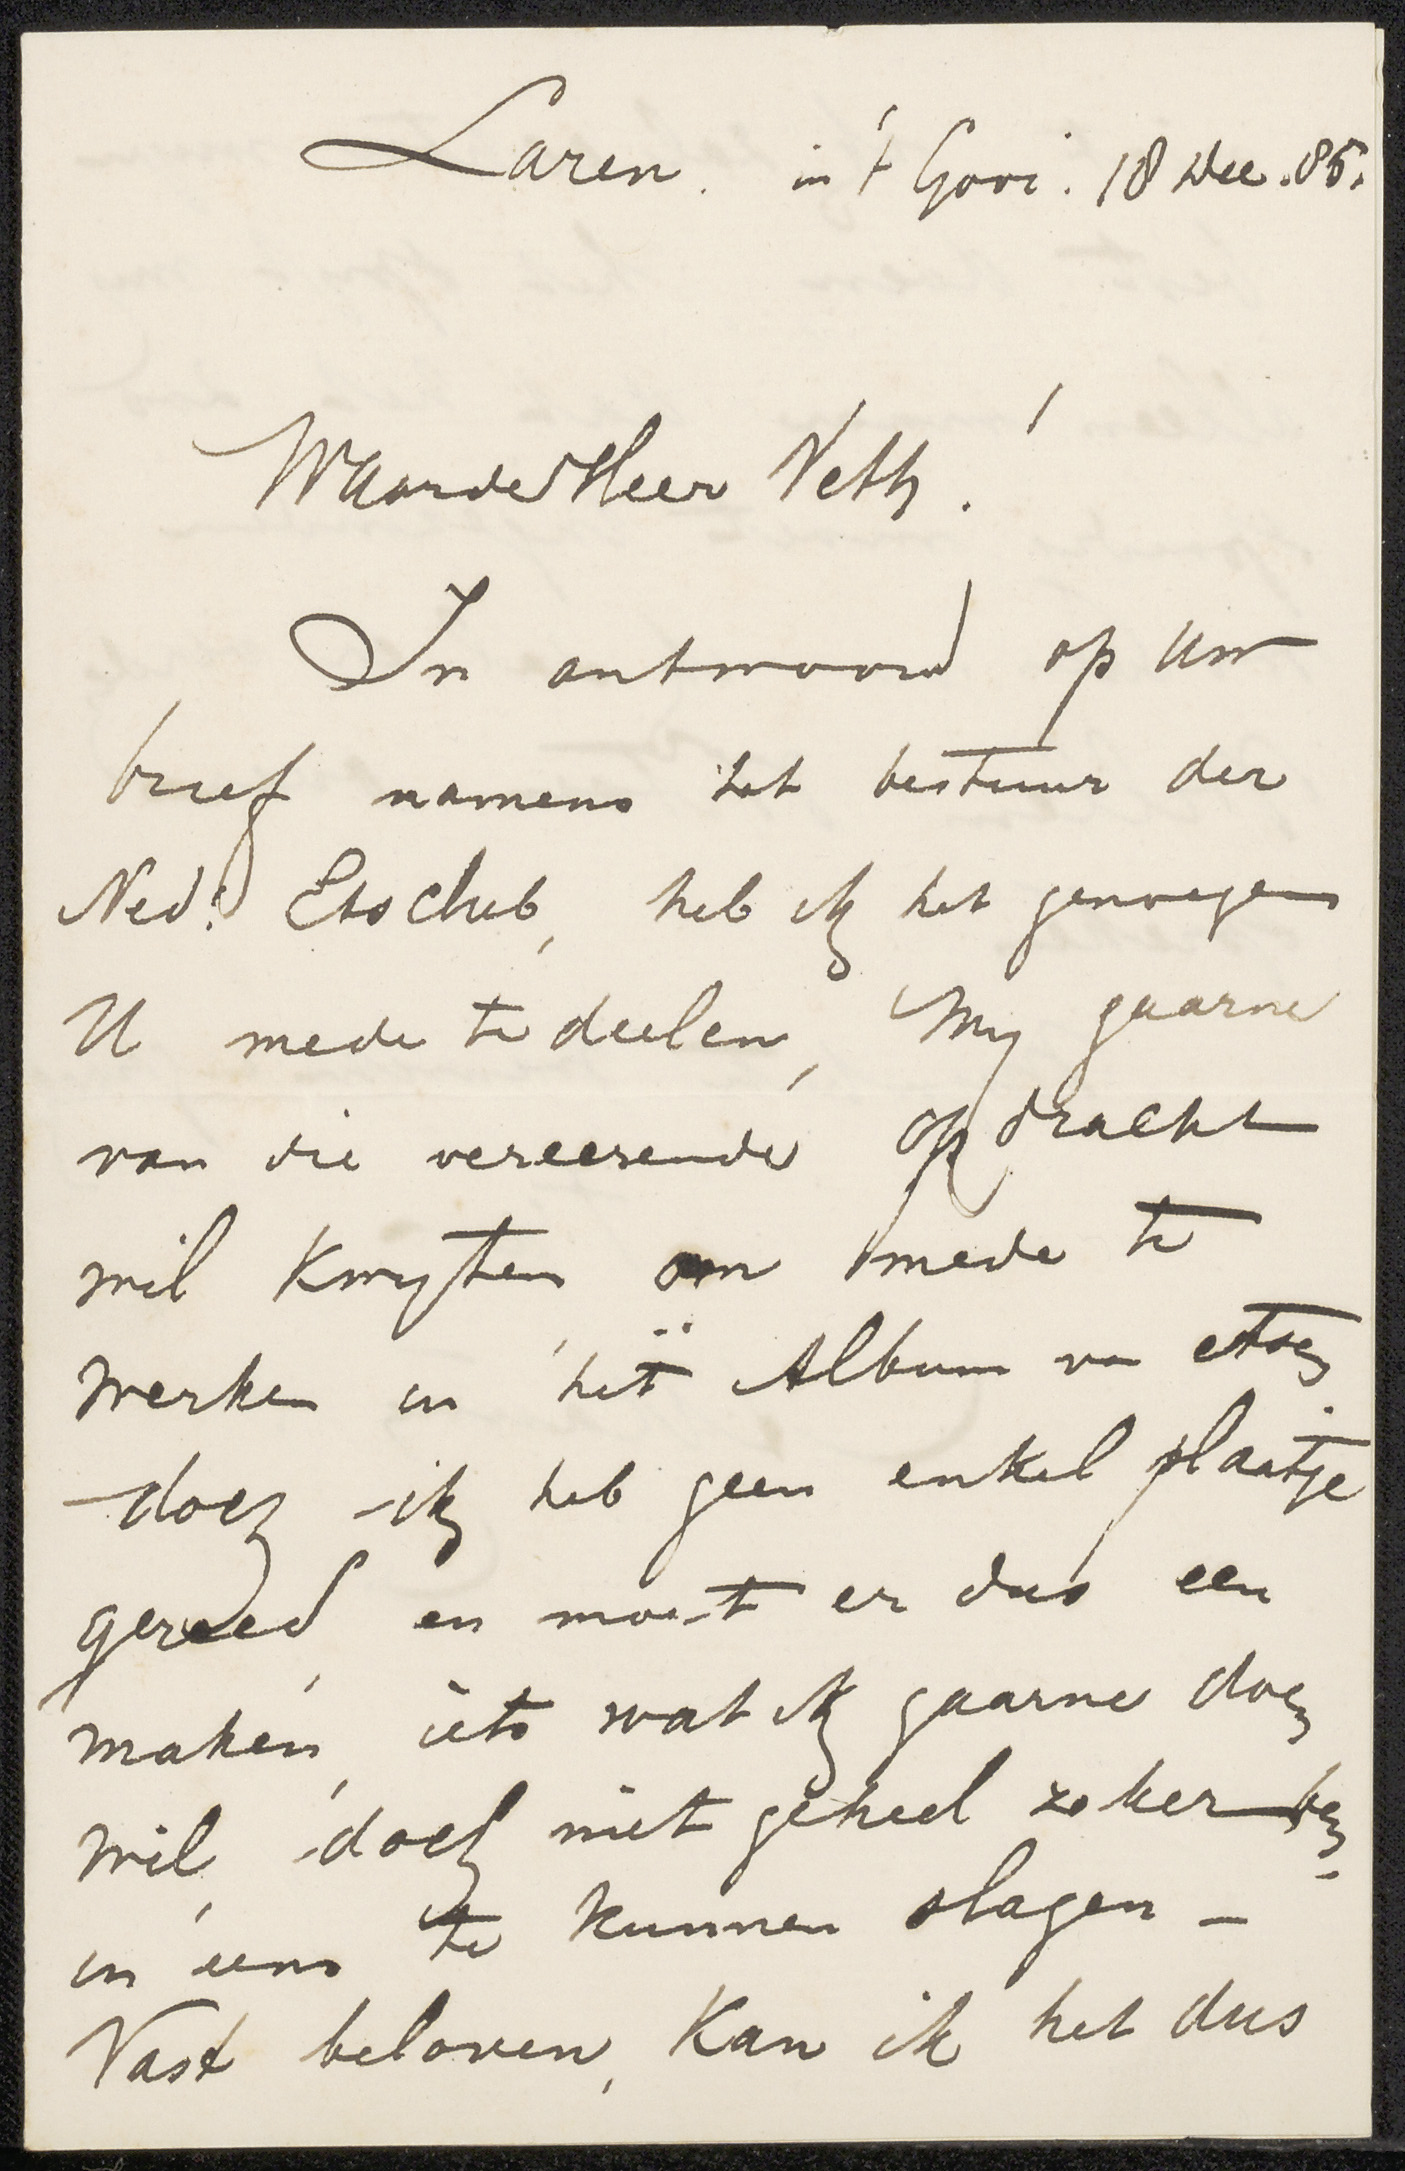 Laren. in 't Gooi. 18 Dec. 85.
Waarde Heer Veth!
In antwoord op Uw
brief namens het bestuur der
Ned. Etsclub, heb ik het genoegen
U mede te deelen, my gaarne
van die vereerende opdracht
wil kwyten om mede te
werken in het Album van etsen,
doch ik heb geen enkel plaatje
gereed, en moet er dus een
maken, iets wat ik gaarne doen
wil, doch niet geheel zeker ben
in eens te kunnen slagen -
Vast beloven, kan ik het dus